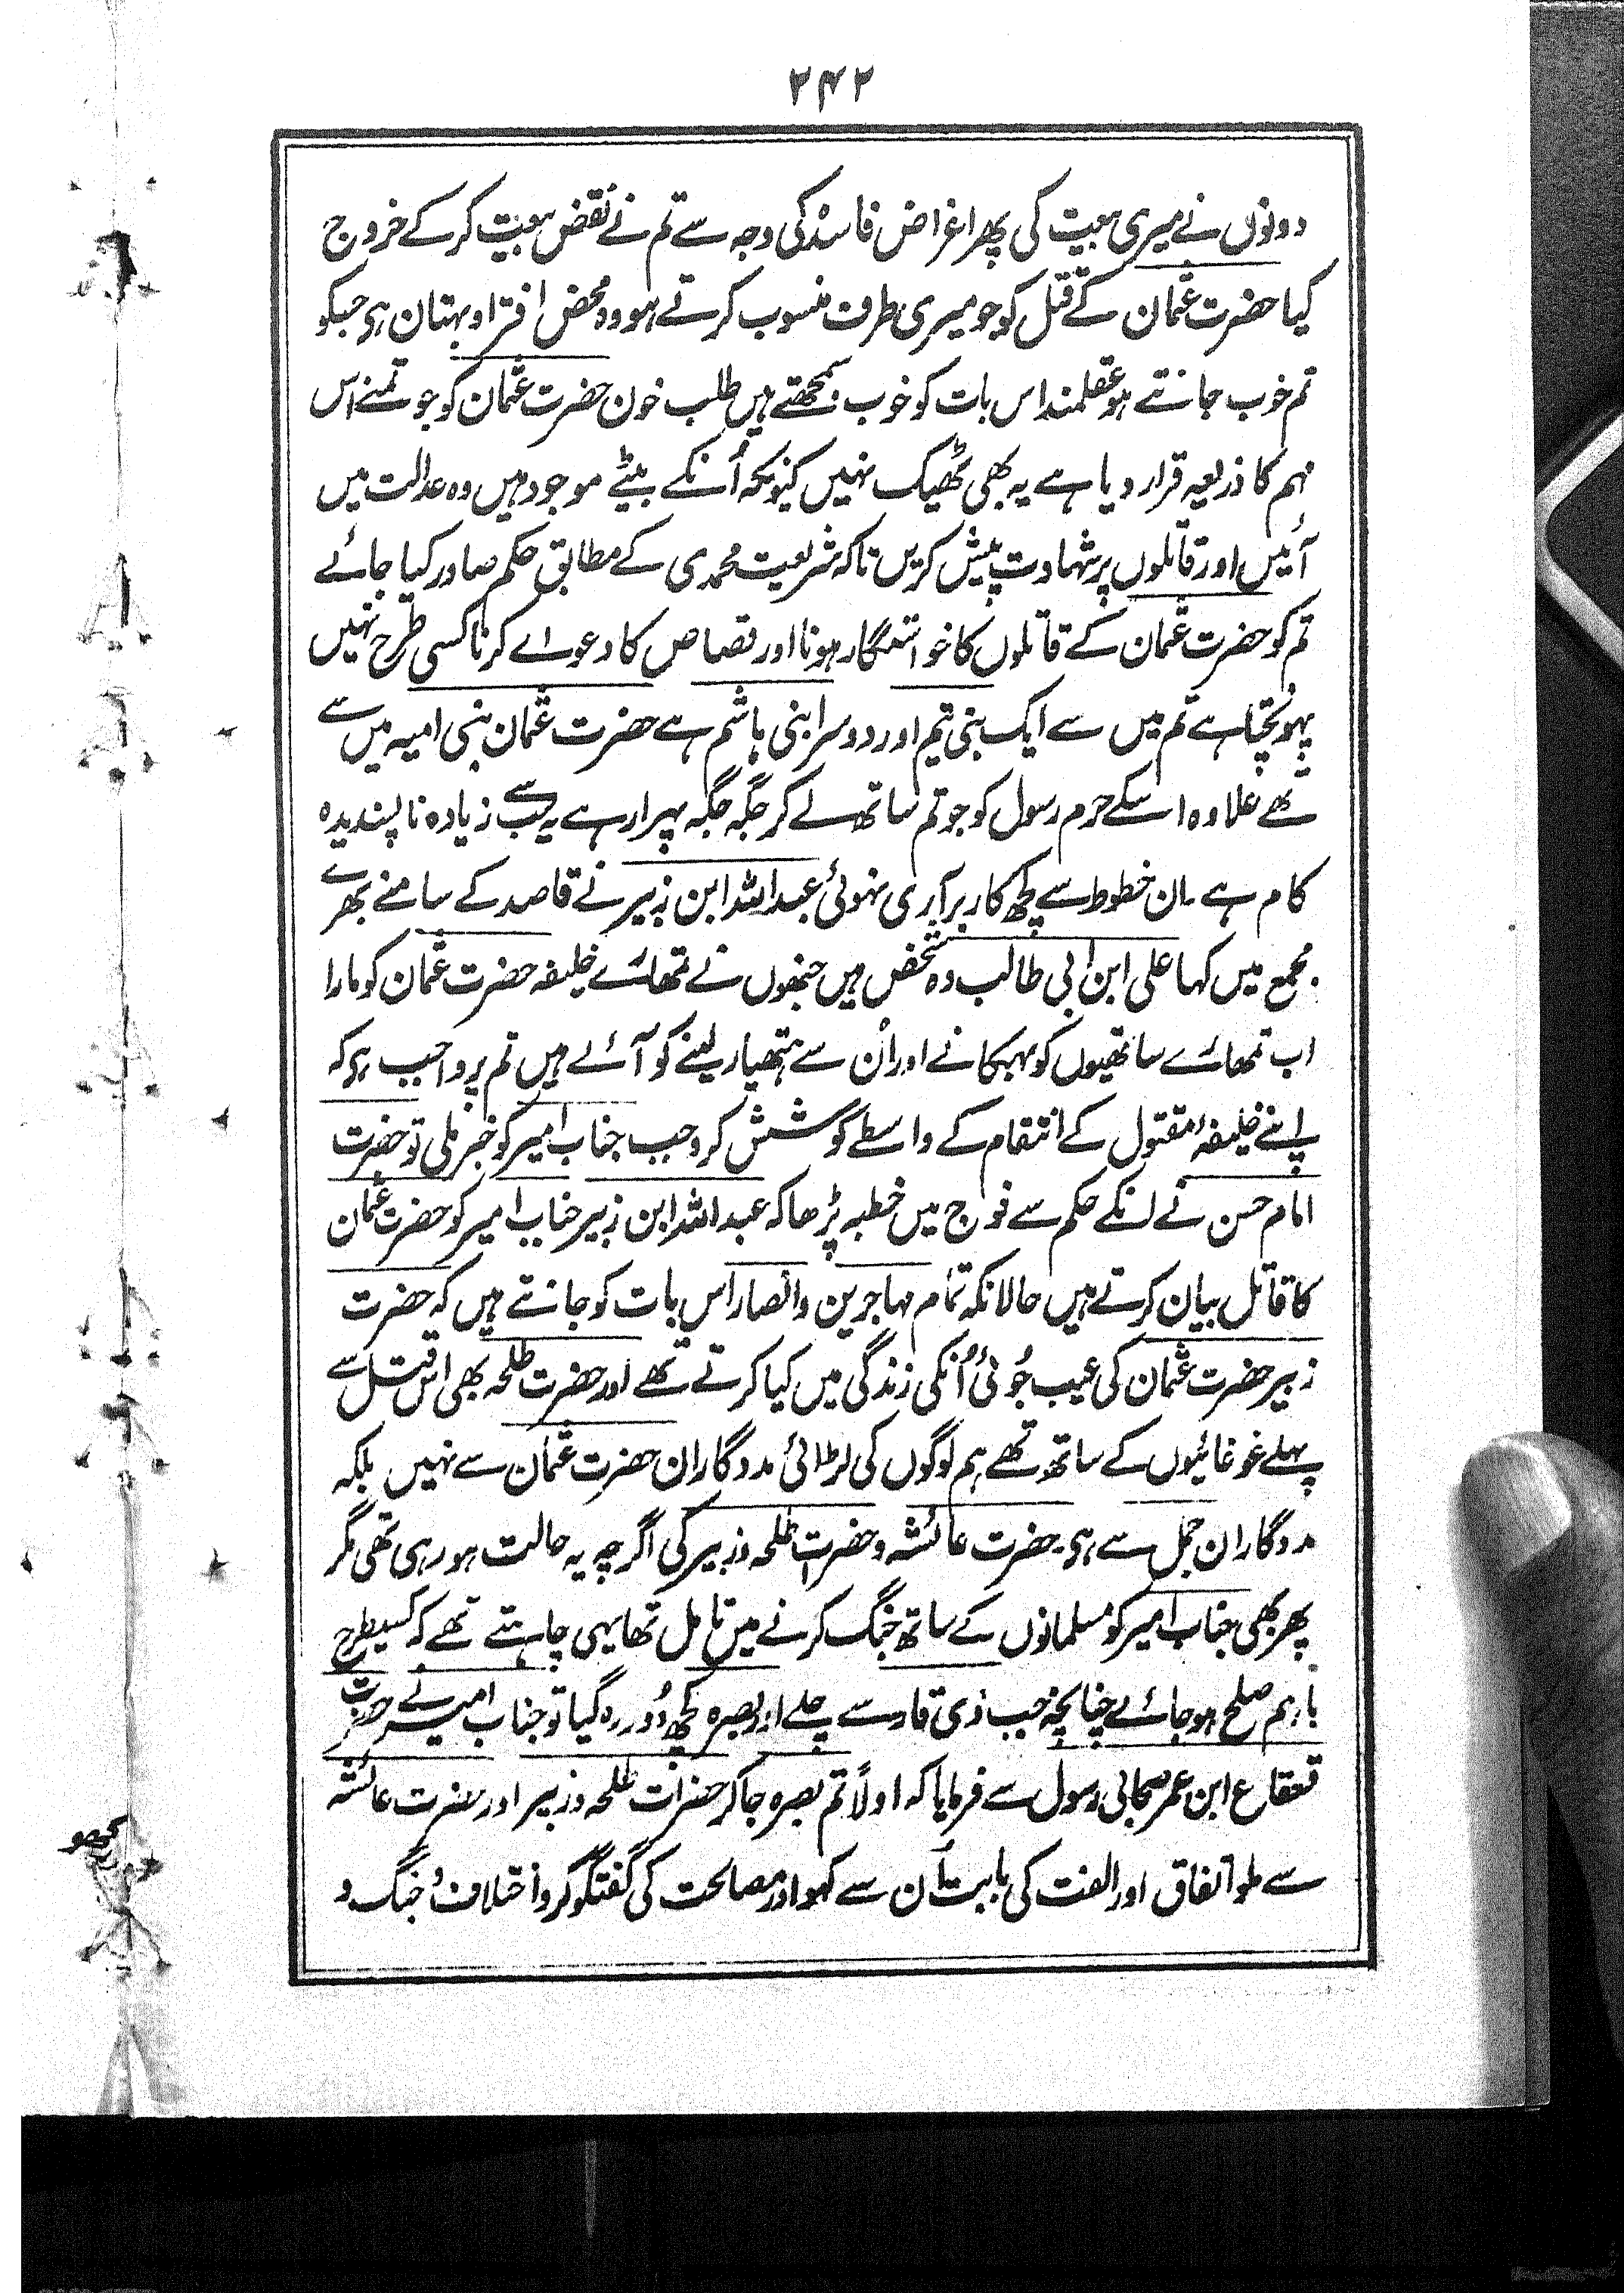 ۲۴۲
دونوں نے میری بیعت کی پھر اغراض فاسدہ کی وجہ سے تم نے نقض بیعت کر کے خروج
کیا حضرت عثمان کے قتل کو جو میری طرف منسوب کرتے ہو وہ محض افترا و بہتان ہی جسکو
تم خوب جانتے ہو عقلمند اس بات کو خوب سمجھتے ہیں طلب خون حضرت عثمان کو جو تمنے اس
مہم کا ذریعہ قرار دیا ہے یہ بھی ٹھیک نہیں کیونکہ اُنکے بیٹے موجود ہیں وہ عدالت میں
آئیں اور قاتلوں پر شہادت پیش کریں تاکہ شریعت محمدی کے مطابق حکم صادر کیا جائے
تم کو حضرت عثمان کے قاتلوں کا خواستگار ہونا اور قصاص کا دعواے کرنا کسی طرح نہیں
پہونچتا ہے تم میں سے ایک بنی تیم اور دوسرا بنی ہاشم ہے حضرت عثمان بنی امیہ میں سے
تھے علاوہ اسکے حرم رسول کو جو تم ساتھ لے کر جگہ جگہ پھرا رہے یہ سب سے زیادہ ناپسندیدہ
کام ہے ۔ ان خطوط سے کچھ کار برآری نہوئی عبداللہ ابن زبیر نے قاصد کے سامنے بھرے
مجمع میں کہا علی ابن ابی طالب وہ شخص ہیں جنھوں نے تمھارے خلیفہ حضرت عثمان کو مارا
اب تمھارے ساتھیوں کو بہکانے اور اُن سے ہتھیار لینے کو آئے ہیں تم پر واجب ہی کہ
اپنے خلیفۂ مقتول کے انتقام کے واسطے کوشش کرو جب جناب امیر کو خبر ملی تو حضرت
امام حسن نے انکے حکم سے فوج میں خطبہ پڑھا کہ عبداللہ ابن زبیر جناب امیر کو حضرت عثمان
کا قاتل بیان کرتے ہیں حالانکہ تمام مہاجرین و انصار اس بات کو جانتے ہیں کہ حضرت
زبیر حضرت عثمان کی عیب جُوئی اُنکی زندگی میں کیا کرتے تھے اور حضرت طلحہ بھی اس قتل سے
پہلے غوغائیوں کے ساتھ تھے ہم لوگوں کی لڑائی مددگاران حضرت عثمان سے نہیں بلکہ
مددگاران جمل سے ہی ۔ حضرت عائشہ و حضرات طلحہ و زبیر کی اگرچہ یہ حالت ہو رہی تھی مگر
پھر بھی جناب امیر کو مسلمانوں کے ساتھ جنگ کرنے میں تامل تھا یہی چاہتے تھے کہ کسیطرح
باہم صلح ہو جائے چنانچہ جب ذی قار سے چلے اور بصرہ کچھ دُور رہ گیا تو جناب امیر نے حضرت
قعقاع ابن عمر صحابی رسول سے فرمایا کہ اولاً تم بصرہ جا کر حضرات طلحہ و زبیر اور حضرت عائشہ
سے ملو اتفاق اور الفت کی بابت اُن سے کہو اور مصالحت کی گفتگو کرو اختلاف و جنگ و